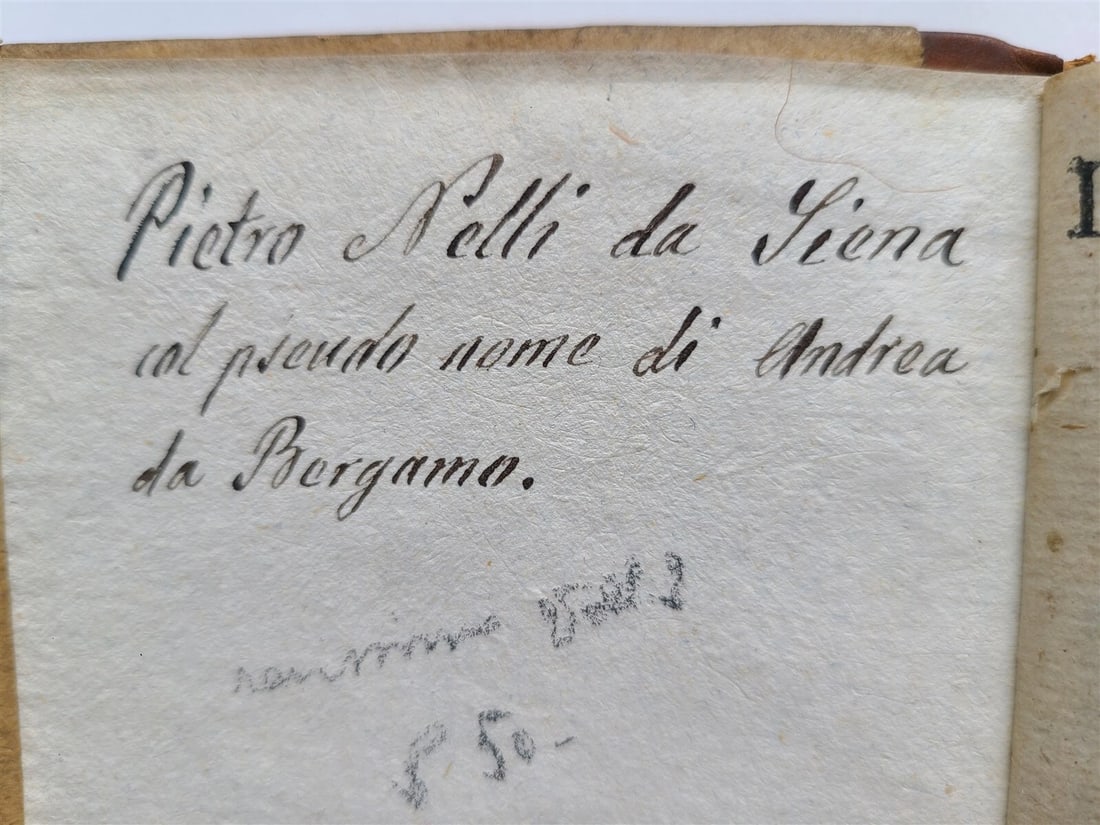 Pietro Nelli da Siena
col pseudo nome di Andrea
da Bergamo.
50-
I